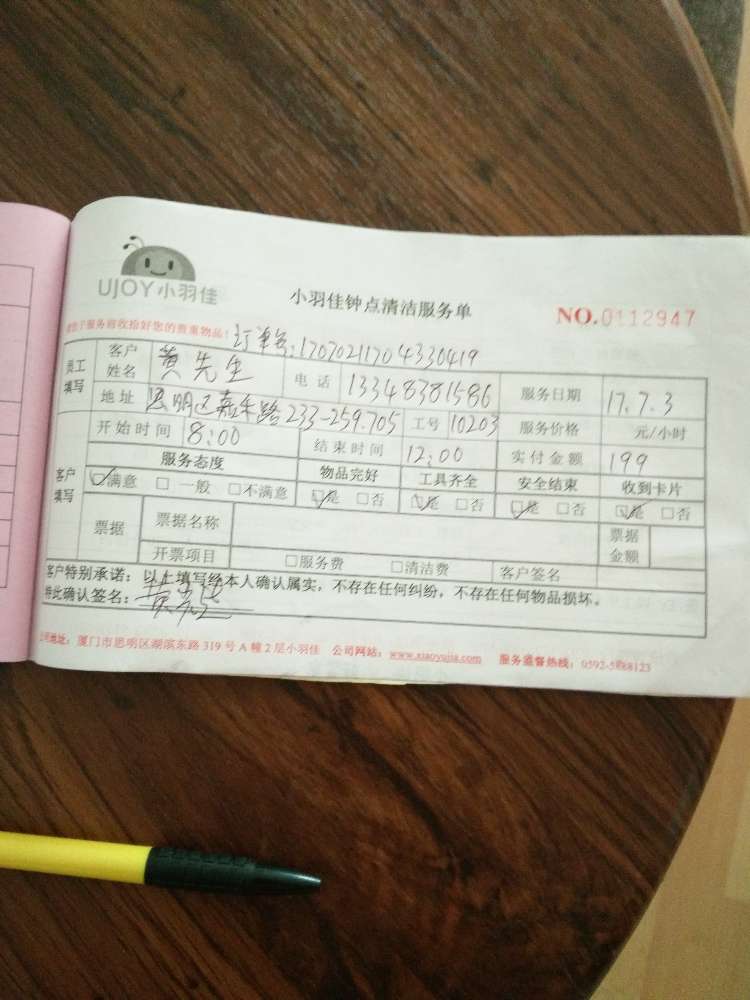 UJOY小羽佳
小羽佳钟点清洁服务单
NO.0112947
请您于服务前收拾好您的贵重物品!
订单号:17070211704330419
员工填写 客户姓名 黄先生 电话 13348381586 服务日期 17.7.3
地址 思明区嘉禾路233-259.705 工号 10203 服务价格 元/小时
开始时间 8:00 结束时间 12:00 实付金额 199
客户填写 服务态度 物品完好 工具齐全 安全结束 收到卡片
☑满意 □一般 □不满意 ☑是 □否 ☑是 □否 ☑是 □否 ☑是 □否
票据 票据名称 票据金额
开票项目 □服务费 □清洁费 客户签名
客户特别承诺:以上填写经本人确认属实,不存在任何纠纷,不存在任何物品损坏。
特此确认签名:
公司地址:厦门市思明区湖滨东路319号A幢2层小羽佳 公司网站:www.xiaoyujia.com 服务监督热线:0592-5888123